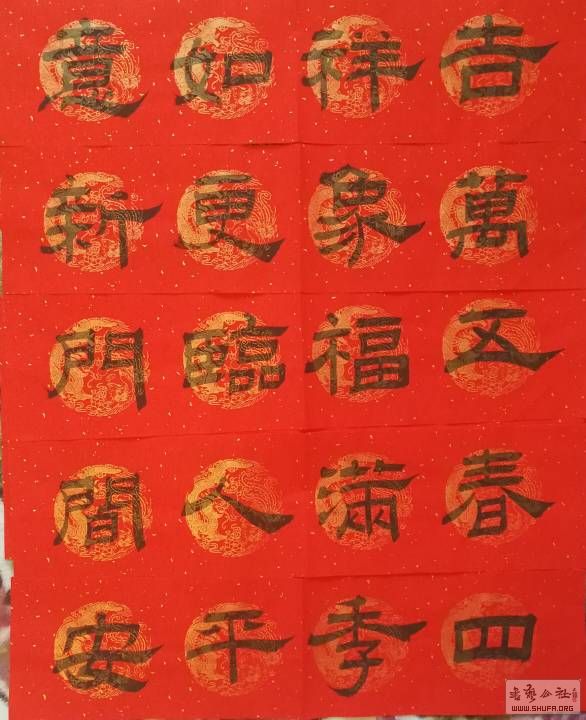 吉祥如意
萬象更新
五福臨門
春滿人間
四季平安
公社
WWW.SHUFA.ORG